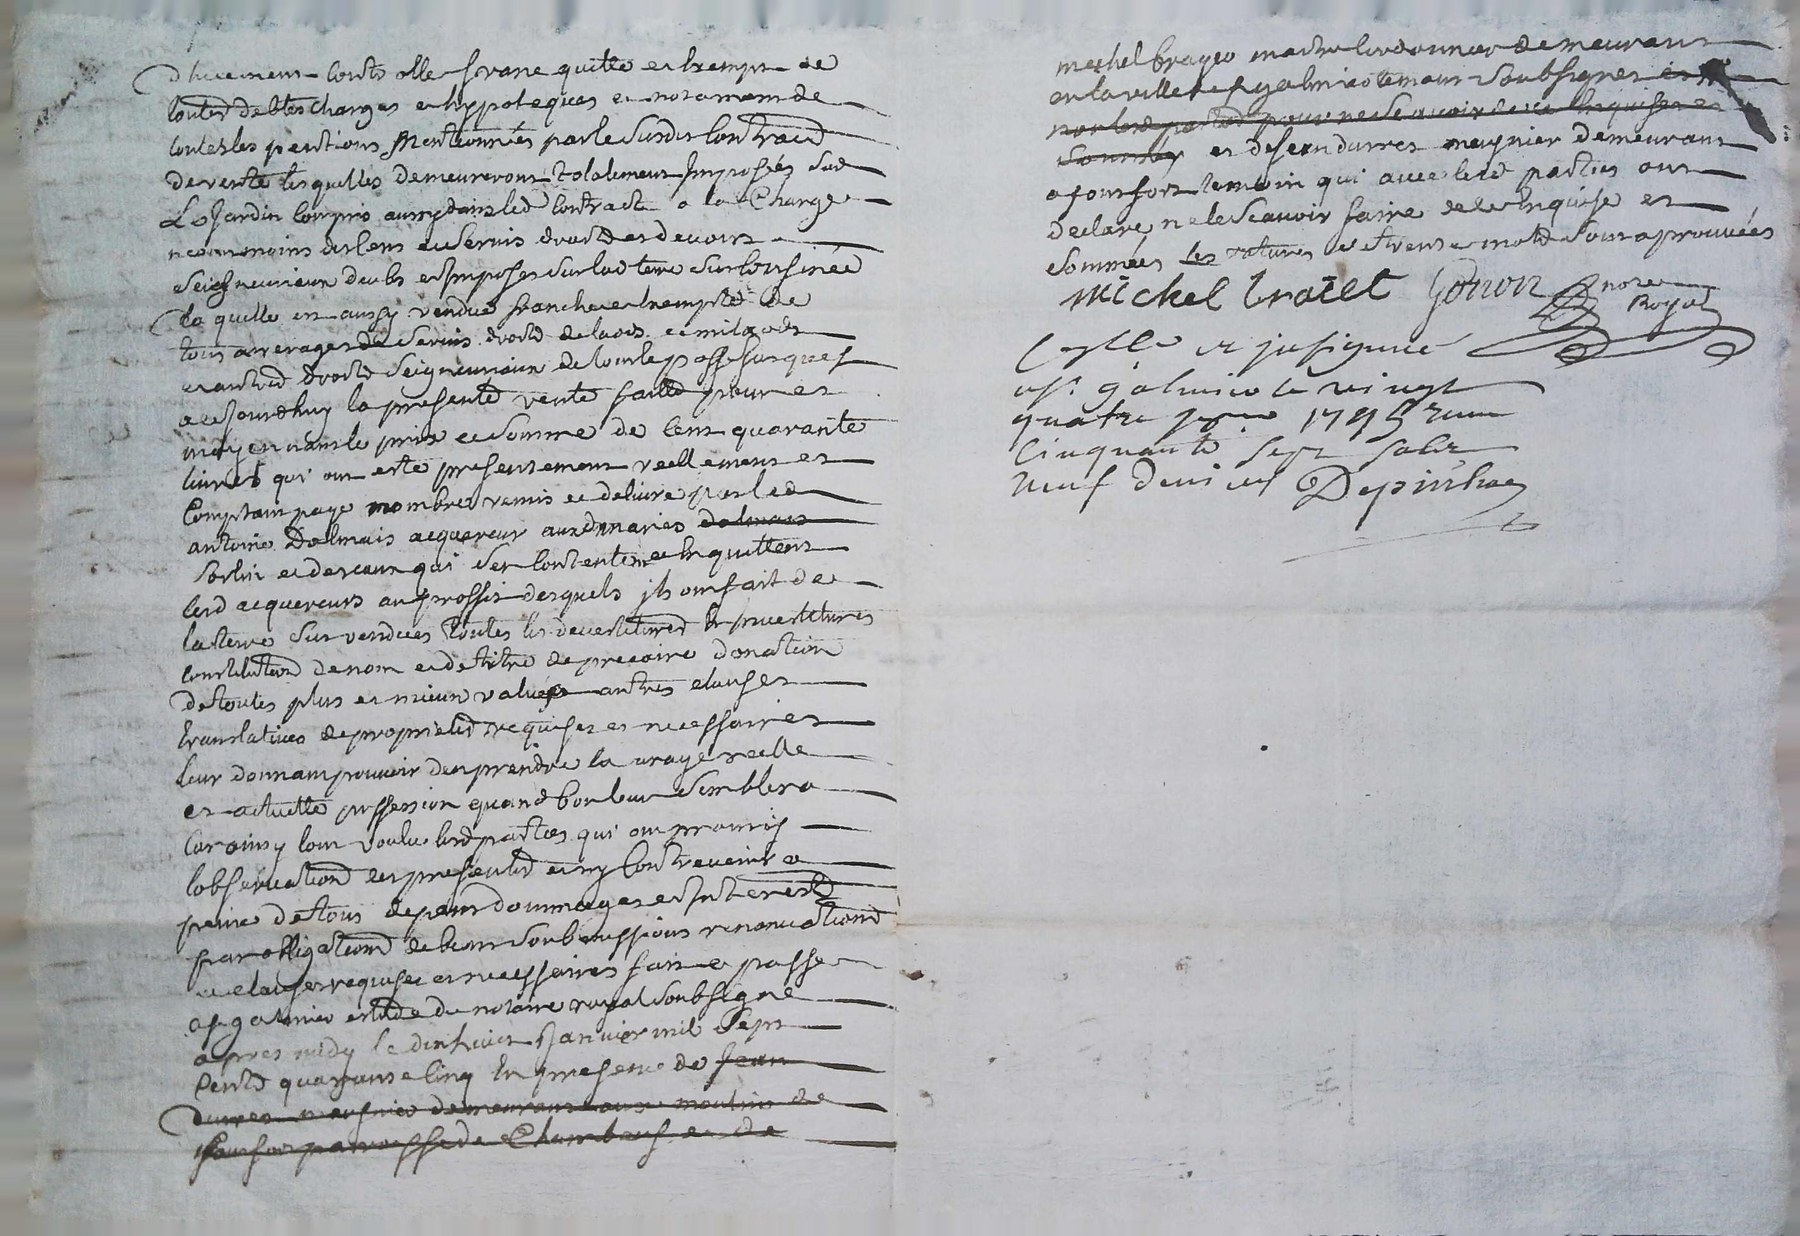 toutes debtes charges et hypoteques et notamment de
toutes les pentions mentionnées par le susdit contract
de vente lesquelles demeureront totalement imposées sur
Le Jardin compris aussy dans led contract a la charge
neanmoins des cens et servis droits et devoirs
seigneuriaux deubs et imposes sur lad terre sur confinée
la quelle est aussy vendue franche et exempte de
tous arrerages de servis droits de laods et milaods
et autres droits seigneuriaux de tout le passé jusques
a ce jourdhuy la presente vente faitte pour et
moyennant le prix et somme de cent quarante
livres qui ont esté presentement reellement et
comptant payé nombré remis et delivré par led
antoine Dalmais acquereur aux dmariés dalmais
Sorlin et descaux qui sen contentent et en quittent
lesd acquereurs au proffit desquels ils ont fait de
la terre sus vendue toutes les devestitures investitures
constitution de nom et de titre de precaire donation
de toutes plus et mieux values autres clauses
translatives de proprieté requises et necessaires
leur donnant pouvoir den prendre la vraye reelle
et actuelle possession quand bon leur semblera
Car ainsy lont voulu lesd parties qui ont promis
lobservation des presentes et ny contrevenir a
peine de tous depens dommages et interests
par obligations de biens soubmissions renonciations
et clauses requises et necessaires fait et passé
a st galmier etude du notaire royal soubsigné
apres midy le dixhuit Janvier mil sept
cents quarante cinq en presence de Jean
durres meusnier demeurant aux moulins de
parroisse de Chambeuf et de
michel maitre cordonnier demeurant
en la ville de st galmier temoin soubsignes et
pour ne scavoir de ce enquises et
sommées et de Jean durres meusnier demeurant
a jourfort temoin qui avec lesd parties ont
declaré ne le scavoir faire de ce enquise et
sommées les ratures et trente mots sont aprouvées
michel Gonon note
Royal
et insinué
a st galmier le vingt
quatre 1745 recu
cinquante sept sols
neuf deniers Depinhac